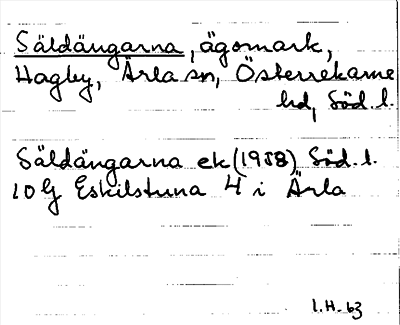 Säldängarna, ägomark,
Hagby, Ärla sn, Österrekarne
hd, Söd. l.
Säldängarna ek (1958) Söd. l.
10 G Eskilstuna 4 i Ärla
I.H. 63